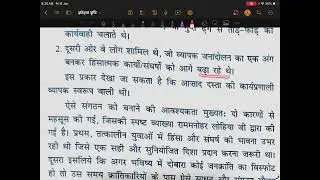 कार्यवाही चलाते थे।
2. दूसरी ओर वे लोग शामिल थे, जो व्यापक जनांदोलन का एक अंग
बनकर हिंसात्मक कार्यों/संघर्षों को आगे बढ़ा रहे थे।
इस प्रकार देखा जा सकता है कि आज़ाद दस्ता की कार्यप्रणाली
व्यापक स्वरूप वाली थी।
ऐसे संगठन को बनाने की आवश्यकता मुख्यतः दो कारणों से
महसूस की गई, जिसकी स्पष्ट व्याख्या राममनोहर लोहिया जी द्वारा की
गई है। प्रथम, तत्कालीन युवाओं में हिंसा और संघर्ष की भावना उभर
रही थी जिसे एक सही और सुनियोजित दिशा प्रदान करना जरूरी था।
दूसरा इसलिये कि अगर भविष्य में दोबारा कोई जनक्रांति का विस्फोट
हो तो उस समय क्रांतिकारियों के पास ऐसे साधन और संगठन